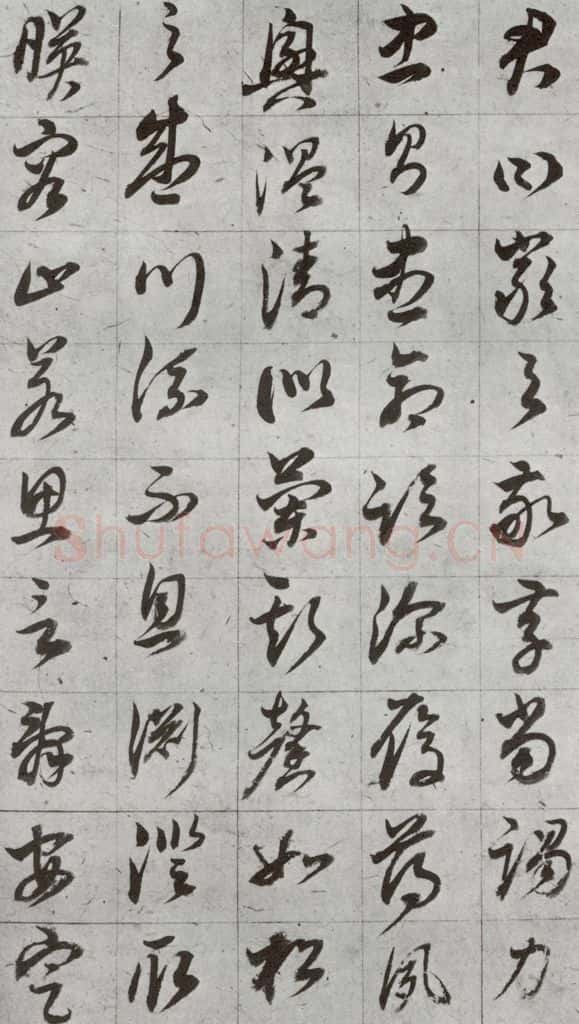 君曰嚴與敬孝當竭力
忠則盡命臨深履薄夙
興溫清似蘭斯馨如松
之盛川流不息淵澄取
映容止若思言辭安定
Shufawang.CN